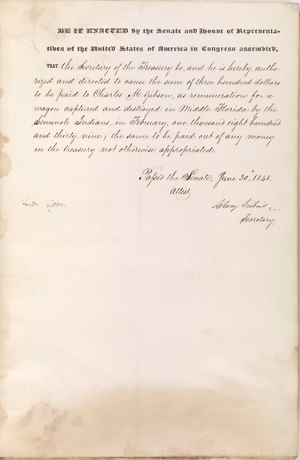 BE IT ENACTED by the Senate and House of Representa-
tives of the United States of America in Congress assembled,
THAT the Secretary of the Treasury be, and he is hereby autho
rized and directed to cause the sum of three hundred dollars
to be paid to Charles M. Gibson, as remuneration for a
wagon captured and destroyed in Middle Florida by the
Seminole Indians, in February, one thousand eight hundred
and thirty nine; the same to be paid out of any money
in the treasury not otherwise appropriated.
Passed the Senate June 30, 1848.
Attest,
Secretary.